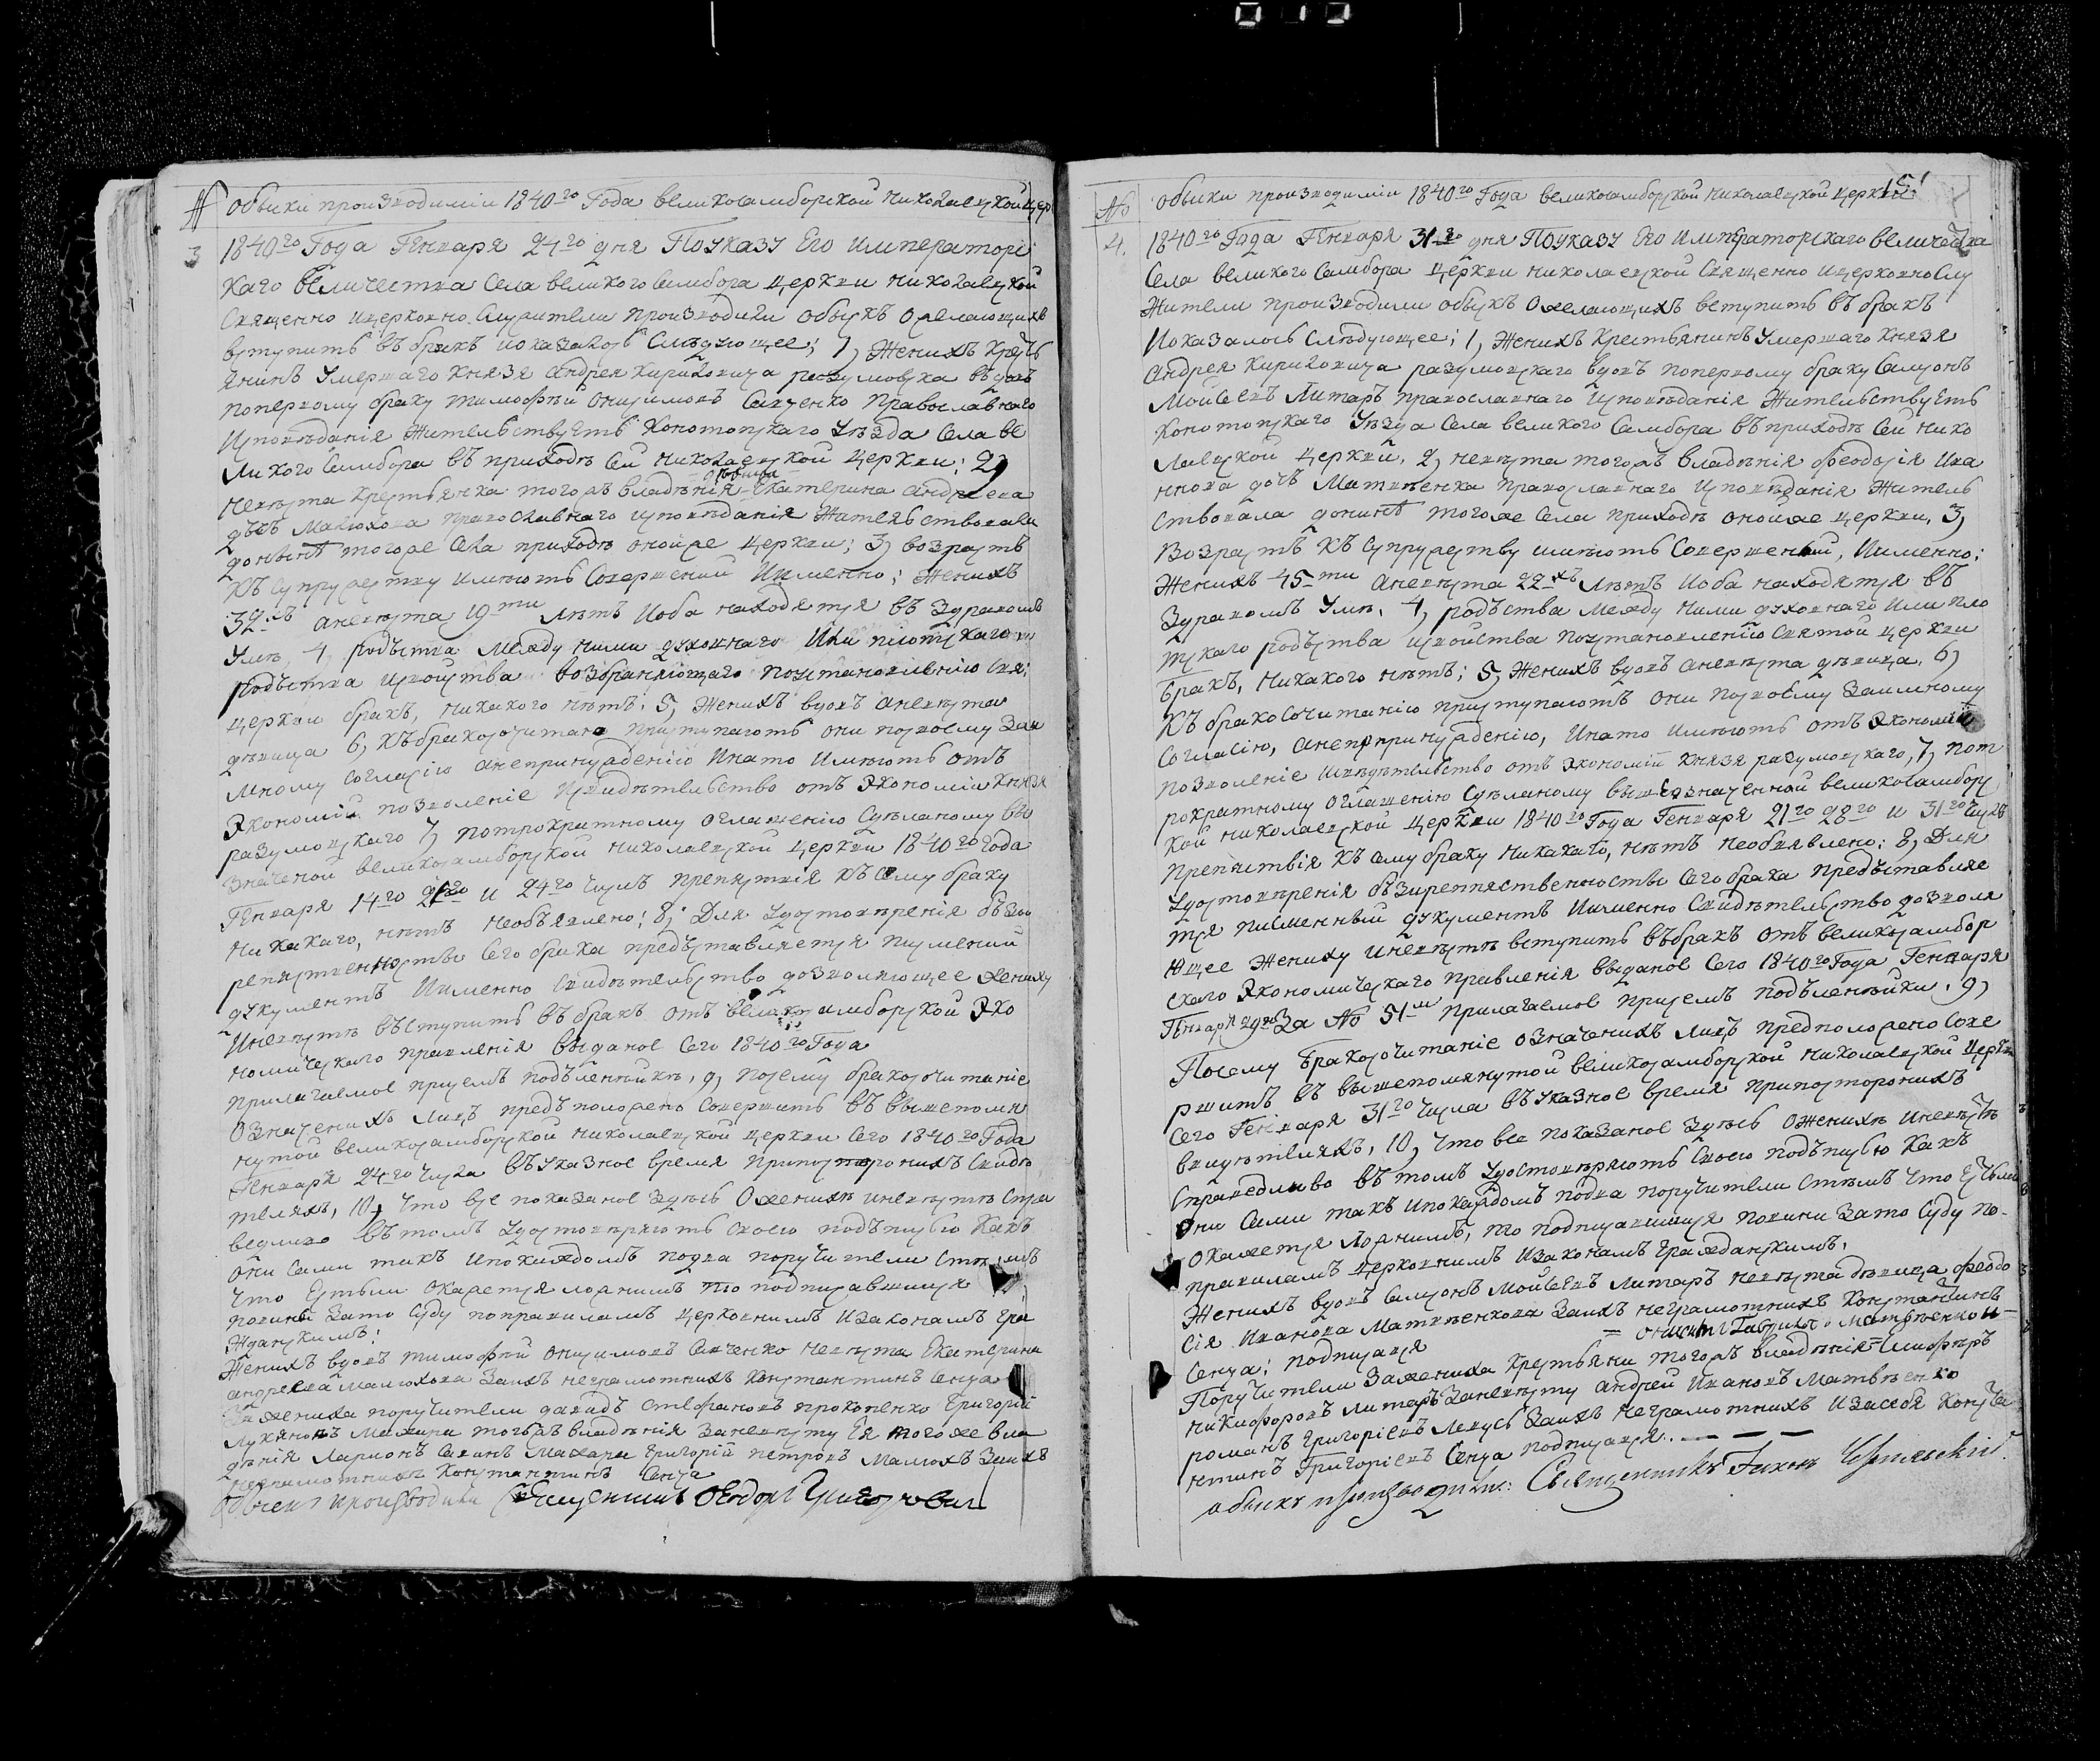 № обыски производиміи 1840го Года великосамборской николаевской цер
3 1840го Года Генваря 24го дня По указу Его императорс
каго величества Села великого Самбора церкви николаевской
Священно ицерковно Служители производили обыскъ Ожелающихъ
вступить въ бракъ иоказалось Слѣдующее; 1, Женихъ Крестъ
янинъ умершаго Князя андрея Кириловича разумовска вдовъ
поперъвому браку тимофѣй онисимовъ Савченко Православнаго
исповѣданія жительствуетъ Конотопскаго уѣзда Села ве
ликого Самбора въ приходѣ Сей николаевской церкви; 2,
невѣста крестьянка тогожъ владѣнія девица Екатерина андреева
дочь Малюхова православнаго исповѣданія жительствовала
донынѣ тогоже Села приходѣ онойже церкви; 3, возрастъ
Къ Супружеству имѣютъ Совершений Именно; женихъ
32хъ аневѣста 19ти лѣтъ Иоба находятся въ здравомъ
умѣ, 4, родъства между ними духовнаго Или плотскаго
родъства исвойства возбраняющаго поустановленію Свя:
церкви бракъ, никакого нѣтъ; 5, женихъ вдовъ аневѣста
дѣвица 6, Къбракосочитано приступаютъ они посвоему Заи
мному согласію анепринужденію Инато Имѣютъ отъ
Экономіи позволеніе исвидѣтельство отъ Экономіи князя
разумовскаго 7, потрократному оглашенію Сдѣланому вы
значеной великосамборской николаевской церкви 1840го Года
Генваря 14го 21го и 24го числъ препятствія къ Сему браку
никакаго, нѣтъ необъявлено; 8, Для Удостовѣренія бѣзп
репятственносты Сего брака предъставляется писмений
дукументъ Именно Свидѣтельство дозволяющее жениху
Иневѣстѣ въступить въ бракъ отъ великосамборской Эко
номическаго правленія выданое Сего 1840го Года
прилагаемое присемъ подълѣнейкѣ, 9, посему бракосочитаніе
Означенихъ лицъ предъположено Совершить въ вышепомя
нутой великосамборской николаевской церкви Сего 1840го Года
Генваря 24го числа въуказное время припосторонихъ Свидѣ
теляхъ, 10, что все показаное здѣсь Оженихѣ иневѣстѣ Спра
ведливо въ томъ Удостовѣряютъ Своею подъписью Какъ
они Сами такъ ипокаждомъ подва поручители Стѣмъ
что Естьли окажется ложнимъ то подписавшияся
повины Зато Суду поправиламъ церковнимъ Изаконамъ Гра
жданскимъ:
Женихъ вдовъ тимофѣй онисимовъ Савченко невѣста Екатерина
андреева Малюхова Заихъ неграмотнихъ Константинъ Сенча
За жениха поручители давидъ стефановъ прокопенко Григорій
Лукяновъ тогожъ владѣнія Заневѣсту Ея тогоже вла
дѣнія Ларионъ Савинъ Макара Григорій петровъ Малюхъ Заихъ
неграмотнихъ Константинъ Сенча
Обыскъ производили Священникъ Ѳеодоръ Григоровичъ

№ обыски производиміи 1840го Года великосамборской николаевской церкви 15
4. 1840го Года Генваря 31го дня По указу Его Императорскаго величества
Села великого Самбора церкви николаевской Священно ицерковноСлу
жители производили обыскъ Ожелающихъ вступить въ бракъ
Иоказалось Слѣдующее; 1, Женихъ Крестьянинъ умершаго князя
андрея Кириловича разумовскаго вдовъ поперъвому браку Самсонъ
Мойсеевъ Литаръ православнаго исповѣданія Жительствуетъ
конотопскаго уѣзда Села великого Самбора въ приходѣ Сей нико
лаевской церкви, 2, невѣста тогожъ владѣнія Феодосія Ива
нова дочь Матвѣенка православнаго исповѣданія Житель
ствовала донынѣ тогоже Села приходѣ онойже церкви, 3,
Возрастъ къ Супружеству имѣютъ Совершеный, Именно;
женихъ 45ти аневѣста 22хъ лѣтъ Иоба находятся въ
Здравомъ умѣ. 4, родъства между ними духовнаго Или пло
тскаго родъства исвойства поустановленію Святой церкви
бракъ, никакого нѣтъ; 5, Женихъ вдовъ аневѣста дѣвица. 6,
Къ бракосочитанію приступаютъ они посвоему Заимному
согласію, анепринужденію, Инато имѣютъ отъ Экономіи
позволеніе исвѣдѣтельство отъ Экономіи князя разумовскаго, 7, пот
рократному оглашенію Сдѣланому вышеозначенной великосамборс
кой николаевской церкви 1840го Года Генваря 21го 28го и 31го числъ
препятствія къ сему браку никакаго, нѣтъ необъявлено; 8, Для
Удостовѣренія бѣзпрепятственносты Сего брака предъставляе
тся писменный дукументъ Именно Свидѣтельство дозволя
ющее Жениху иневѣстѣ вступить въбракъ отъ великосамбор
скаго Экономическаго правленія выданое Сего 1840го Года Генваря
Генваря 29го За № 51м прилагаемое присемъ подълѣнейки. 9,
Посему бракосочитаніе означенихъ лицъ предположено Сове
ршить въ вышепомянутой великосамборской николаевской церкви
Сего Генваря 31го числа въуказное время припосторонихъ
Свидѣтеляхъ, 10, что все показаное здѣсь Оженихѣ иневѣстѣ
Справедливо въ томъ Удостовѣряютъ Своею подъписью какъ
они Сами такъ ипокаждомъ подва поручители Стѣмъ что Естьли
окажется ложнимъ, то подписавшияся повини Зато Суду по-
правиламъ церковнимъ Изаконамъ Гражданскимъ.
Женихъ вдовъ Самсонъ Мойсеевъ Литаръ невѣста дѣвица Феодо
сія Иванова Матвѣенкова Заихъ неграмотнихъ Константинъ
Сенча; подписался = онисим Гаврилов Матвѣенко и =
Поручители Зажениха Крестьяни тогожъ владѣнія = Никифоръ
никифоровъ Литаръ Заневѣсту андрей Ивановъ Матвѣенко
романъ Григоріевъ Ленусь Заихъ неграмотнихъ Изасебя Конста
нтинъ Григоріевъ Сенча подписался. — — —
обыскъ производили: Священникъ Тихонъ Чернявскій